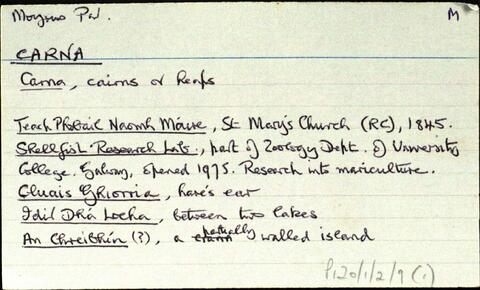 Moyrus Par. M
CARNA
Carna, cairns or heaps
Teach Phobail Naomh Máire, St Mary's Church (RC), 1845.
Shellfish Research Lab., part of Zoology Dept. of University
College, Galway, opened 1975. Research into mariculture.
Cluais Ghiorria, hare's ear
Idil Dhá Locha, between two lakes
An Chreibhín (?), a partially walled island
P120/1/2/9 (1)